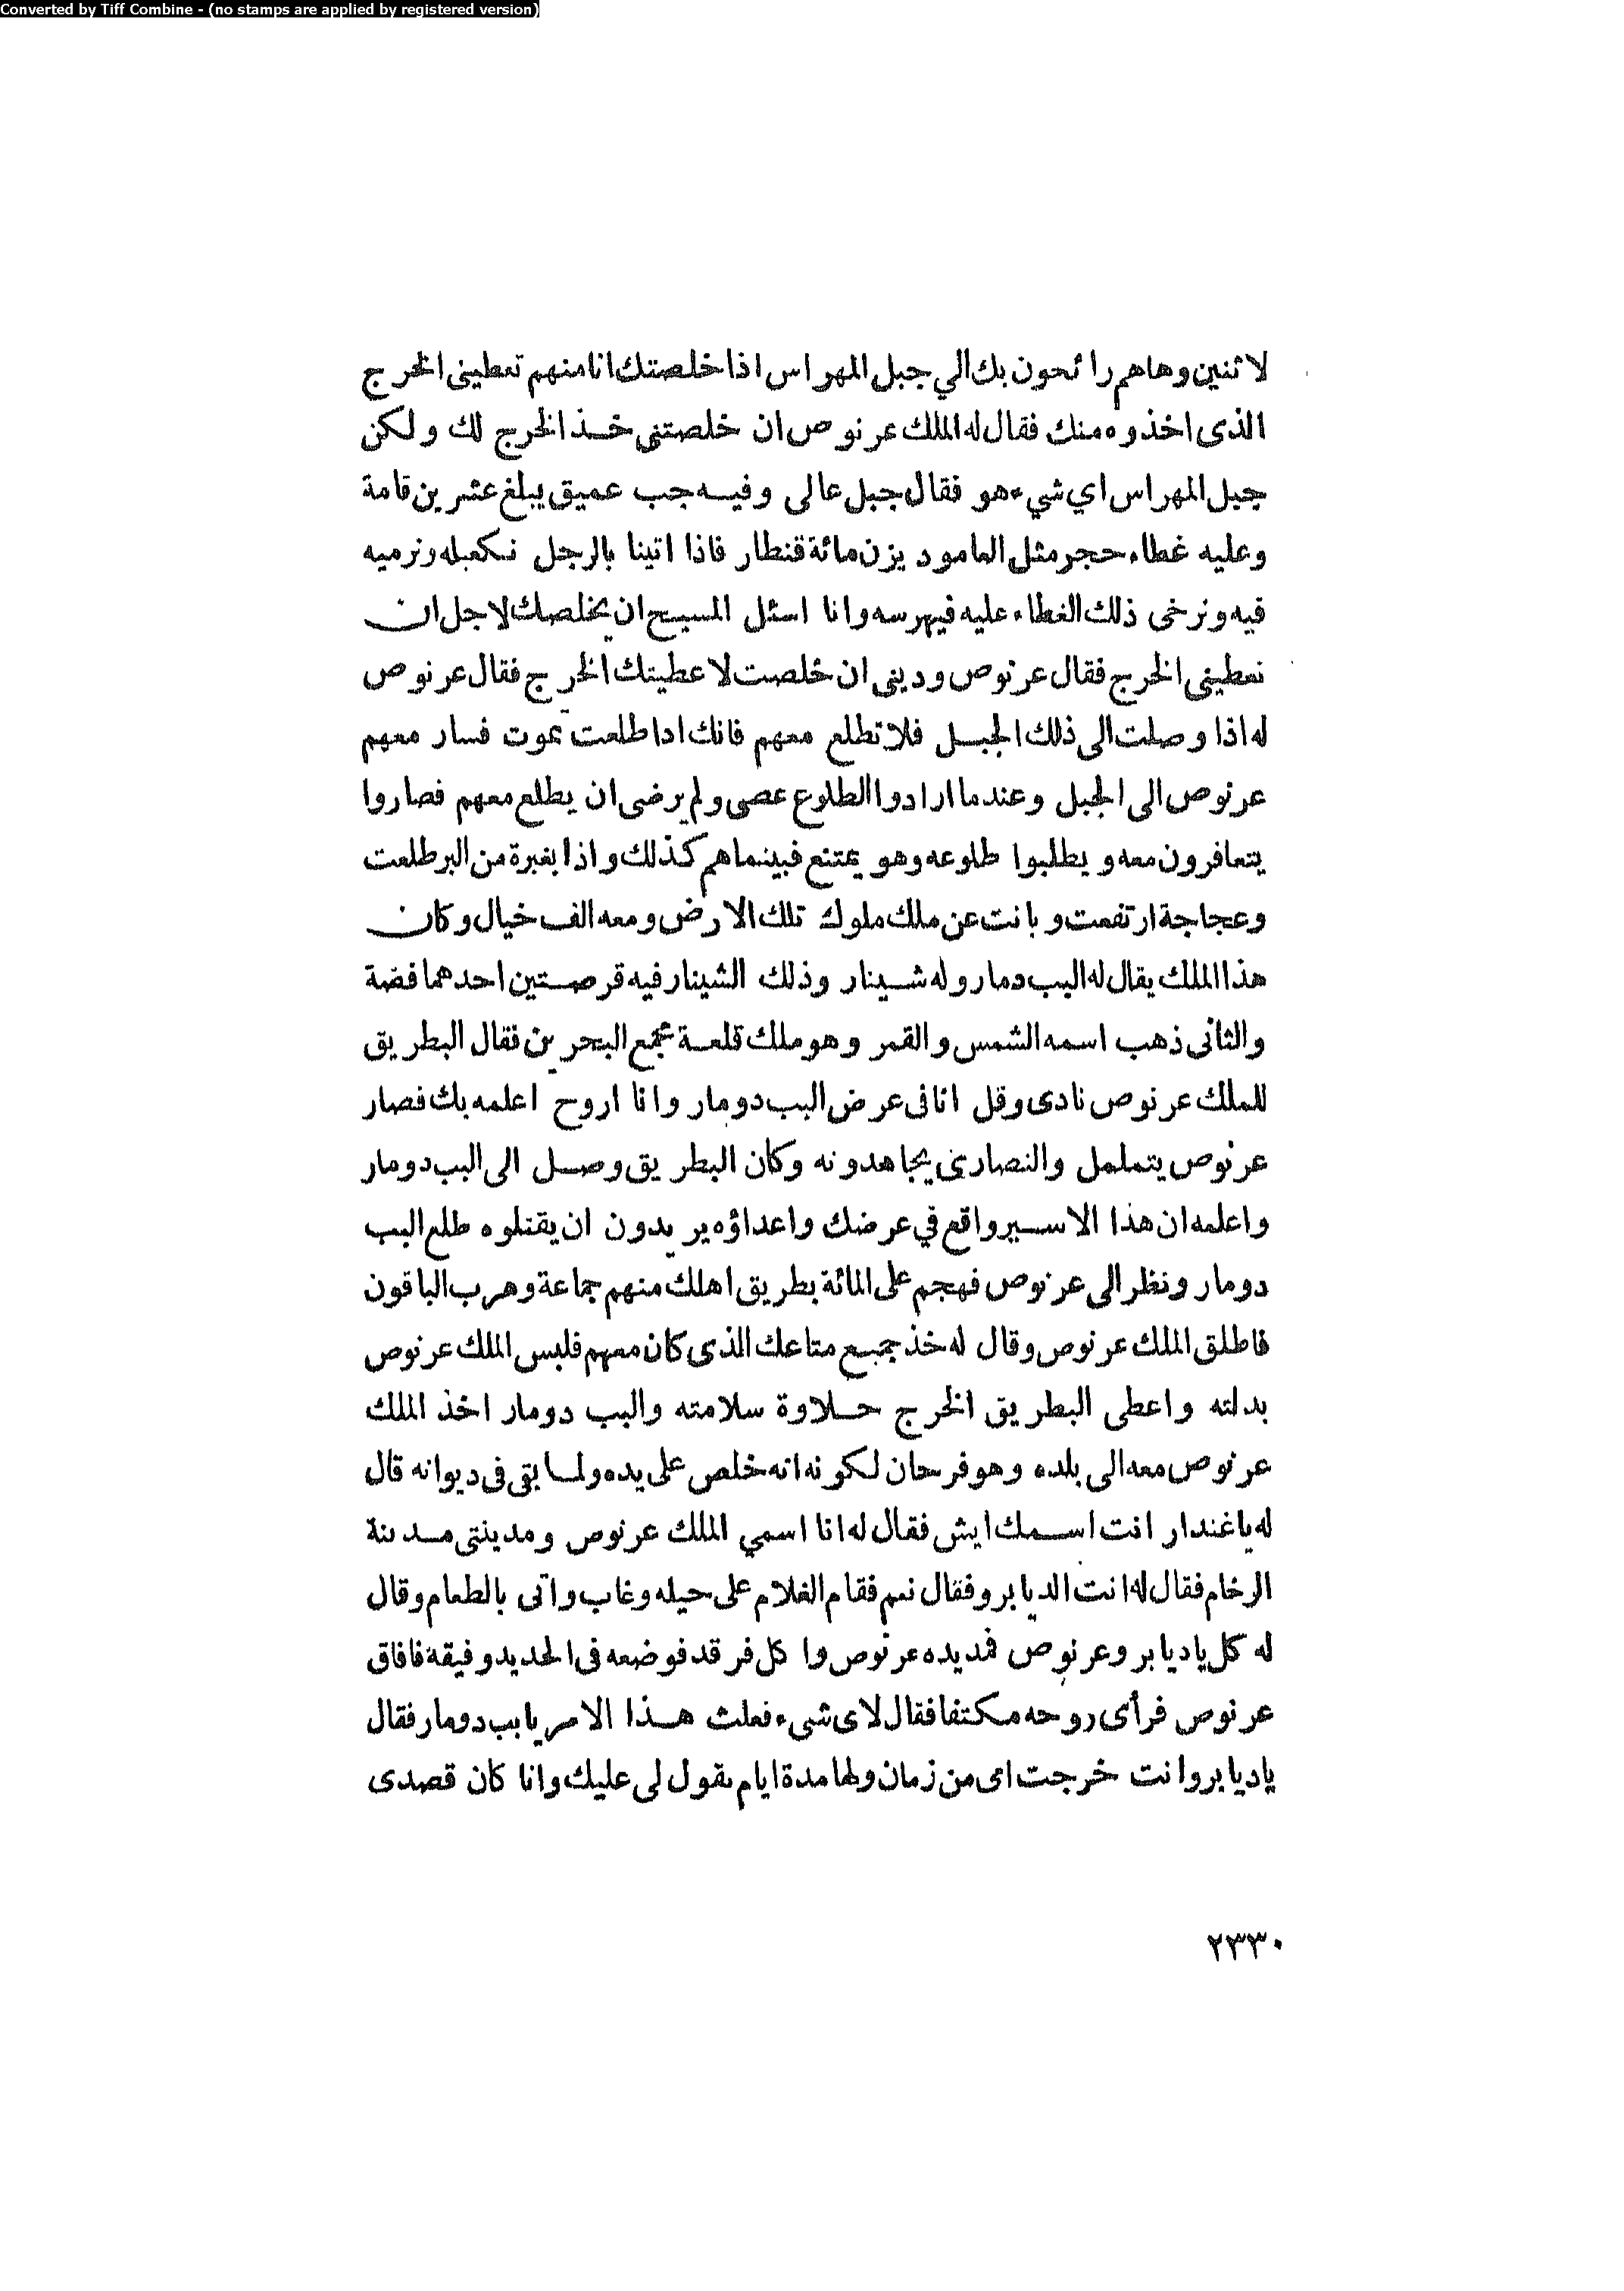 Converted by Tiff Combine - (no stamps are applied by registered version)
لاثنين وهاهم رائحون بك الي جبل المهراس اذا خلصتك انا منهم تعطينى الخرج
الذى اخذوه منك فقال له الملك عرنوص ان خلصتنى خذ الخرج لك ولكن
جبل المهراس اي شيء هو فقال جبل عالى وفيه جب عميق يبلغ عشرين قامة
وعليه غطاء حجر مثل العامود يزن مائة قنطار فاذا اتينا بالرجل نكعبله ونرميه
فيه ونرخى ذلك الغطاء عليه فيهرسه وانا اسئل المسيح ان يخلصك لاجل ان
تعطينى الخرج فقال عرنوص ودينى ان خلصت لاعطيتك الخرج فقال عرنوص
له اذا وصلت الى ذلك الجبل فلا تطلع معهم فانك اذا طلعت تموت فسار معهم
عرنوص الى الجبل وعندما ارادوا الطلوع عصى ولم يرضى ان يطلع معهم فصاروا
يتعافرون معه ويطلبوا طلوعه وهو يمتنع فبينما هم كذلك واذا بغبرة من البر طلعت
وعجاجة ارتفعت وبانت عن ملك ملوك تلك الارض ومعه الف خيال وكان
هذا الملك يقال له البب دمار وله شينار وذلك الشينار فيه قرصتين احدهما فضة
والثانى ذهب اسمه الشمس والقمر وهو ملك قلعة مجمع البحرين فقال البطريق
للملك عرنوص نادى وقل انا فى عرض البب دومار وانا اروح اعلمه بك فصار
عرنوص يتململ والنصارى يجاهدونه وكان البطريق وصل الى البب دومار
واعلمه ان هذا الاسير واقع في عرضك واعداؤه يريدون ان يقتلوه طلع البب
دومار ونظر الى عرنوص فهجم على المائة بطريق اهلك منهم جماعة وهرب الباقون
فاطلق الملك عرنوص وقال له خذ جميع متاعك الذى كان معهم فلبس الملك عرنوص
بدلته واعطى البطريق الخرج حلاوة سلامته والبب دومار اخذ الملك
عرنوص معه الى بلده وهو فرحان لكونه انه خلص على يده ولما بقى فى ديوانه قال
له ياغندار انت اسمك ايش فقال له انا اسمي الملك عرنوص ومدينتى مدينة
الرخام فقال له انت الديابرو فقال نعم فقام الغلام على حيله وغاب وآتى بالطعام وقال
له كل ياديابرو عرنوص فمد يده عرنوص واكل فرقد فوضعه فى الحديد وفيقه فافاق
عرنوص فرأى روحه مكتفا فقال لاى شىء فعلت هذا الامر يابب دومار فقال
ياديابرو انت خرجت امى من زمان ولها مدة ايام تقول لى عليك وانا كان قصدى
٢٣٣٠